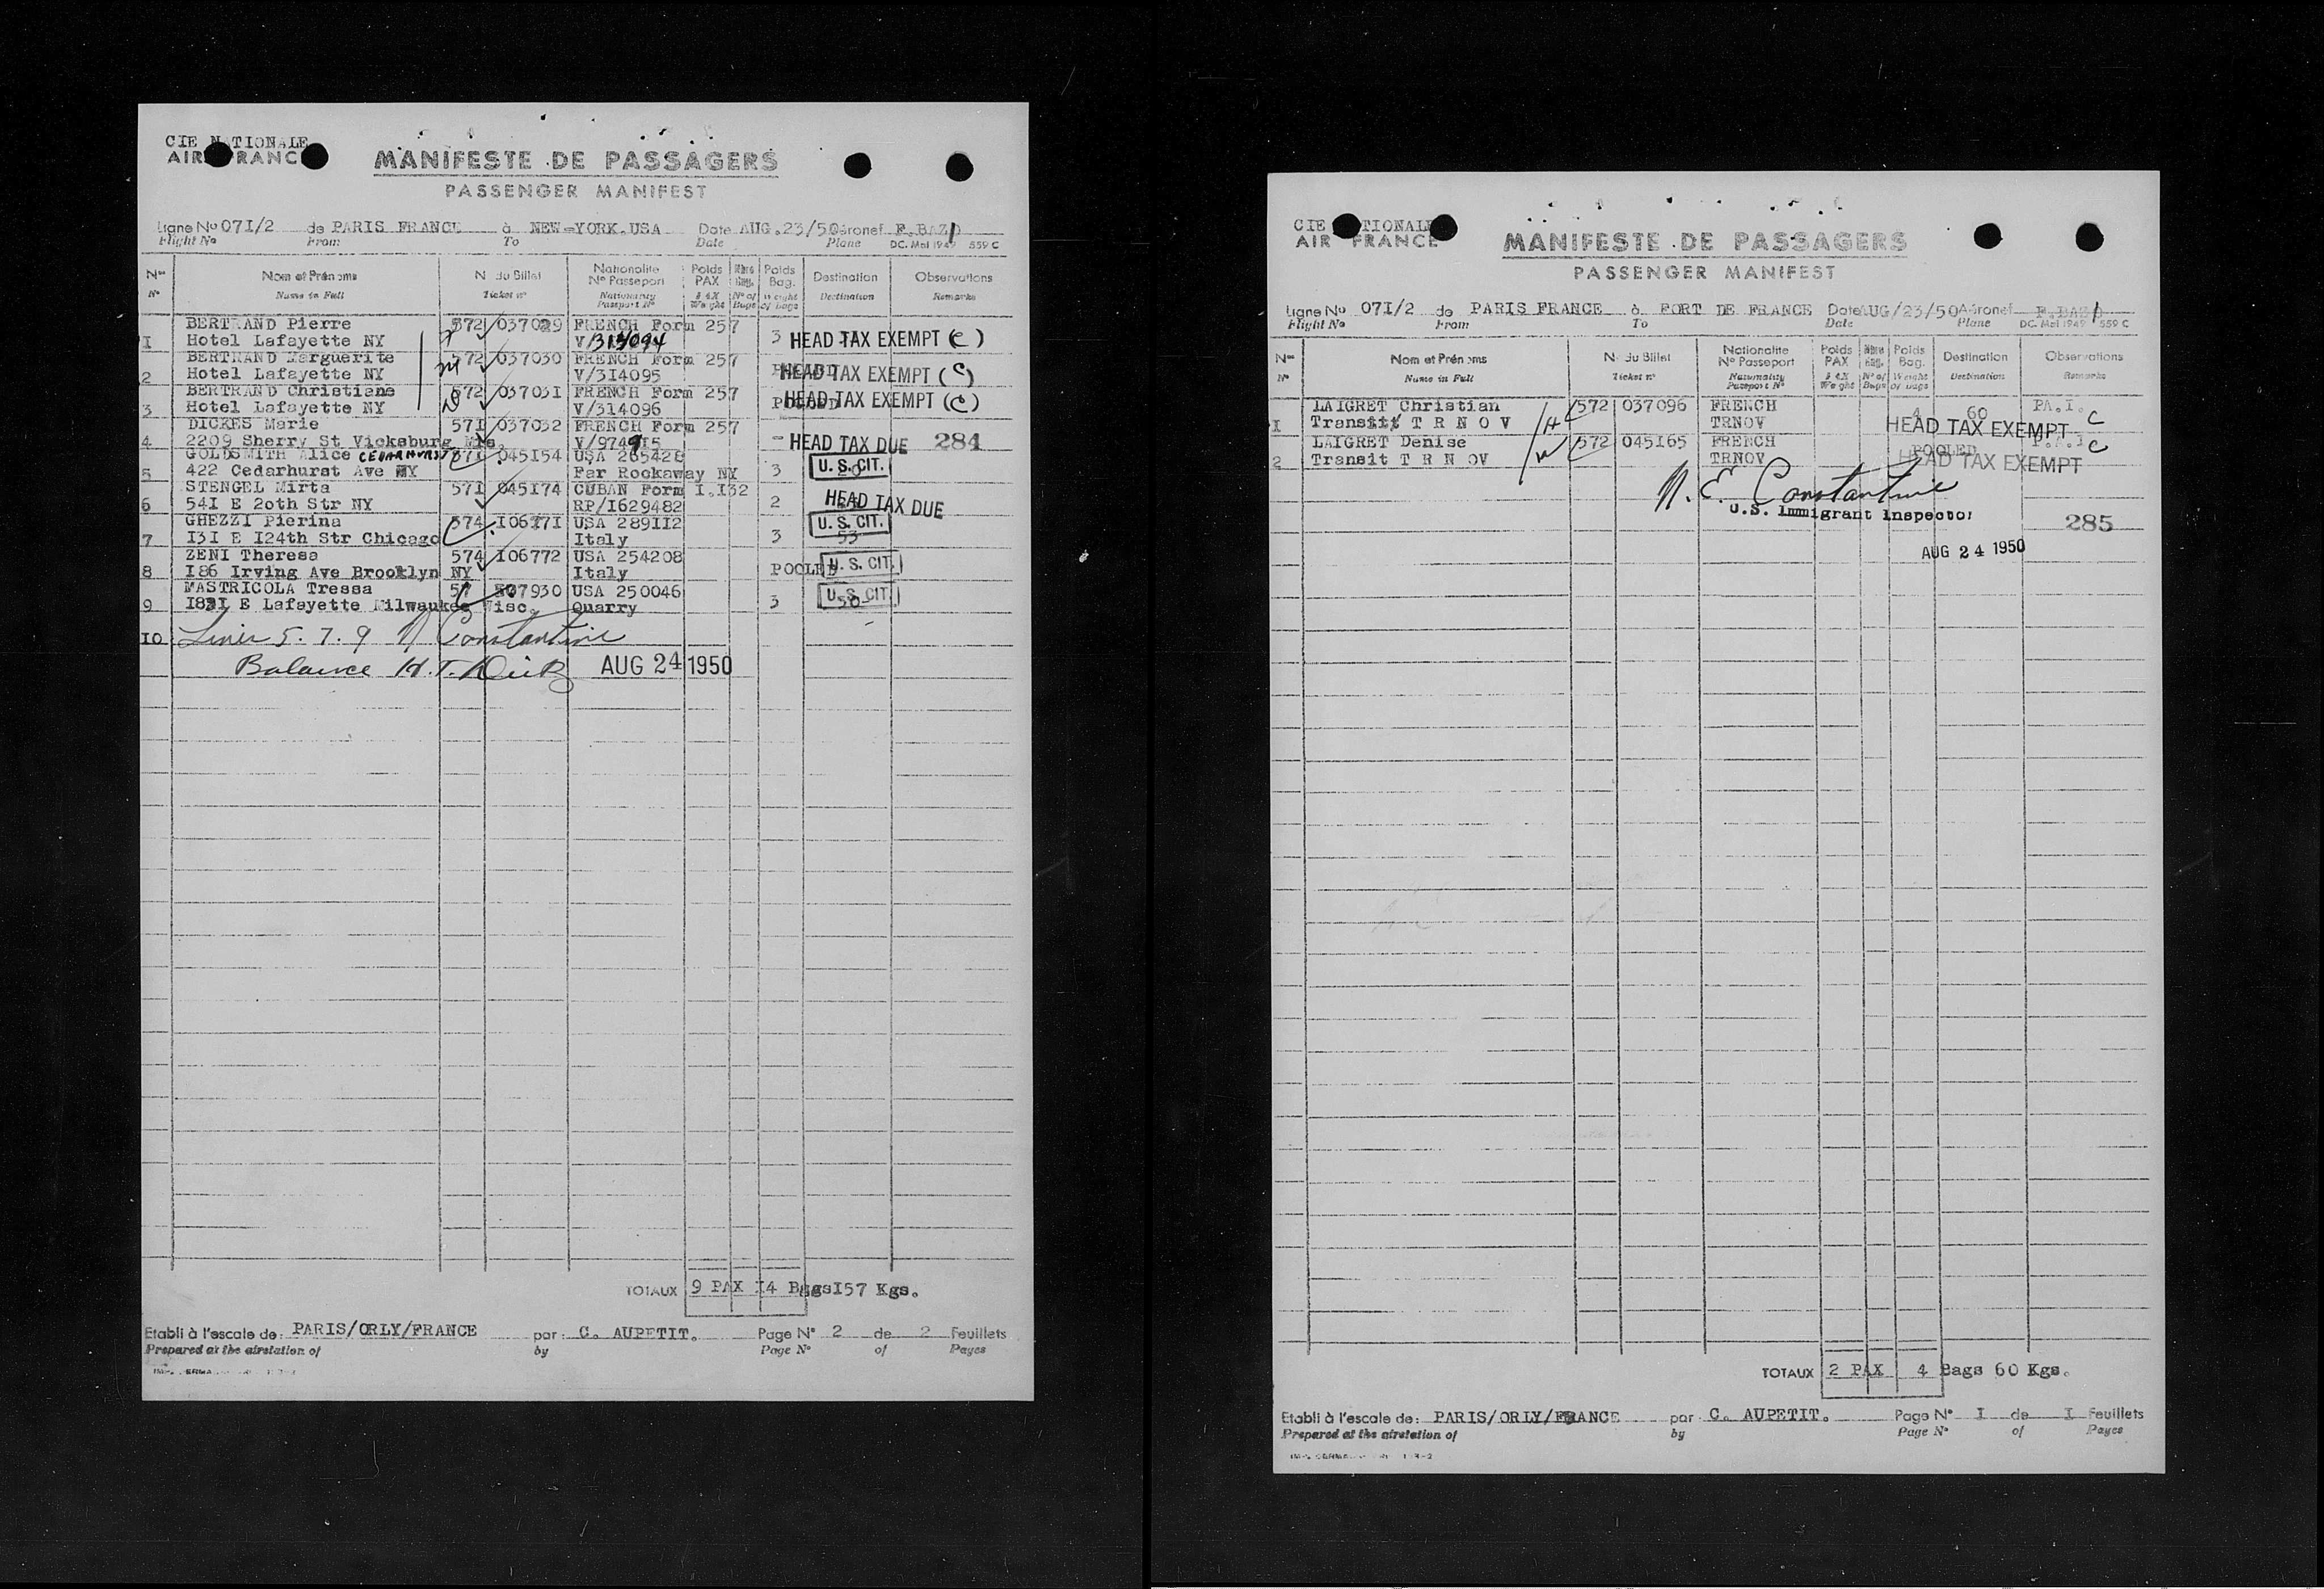 CIE N TIONALE
AIR FRANC
MANIFESTE DE PASSAGERS
PASSENGER MANIFEST
Ligne No 07I/2 de PARIS FRANCE à NEW-YORK.USA Date AUG.23/50 Aéronef F.BAZ
Flight No From To Date Plane DC. Mel 1949 559 C
Nos Nom et Prénoms N du Billet Nationalite No Passeport Poids PAX Poids Bag. Destination Observations
No Name in Full Ticket no Nationality Passport No Weight No of Bags Weight of bags Destination Remarks
BERTRAND Pierre 572 037029 FRENCH Form 257
I Hotel Lafayette NY V/314094 3 HEAD TAX EXEMPT (C)
BERTRAND Marguerite 572 037030 FRENCH Form 257
2 Hotel Lafayette NY V/314095 HEAD TAX EXEMPT (C)
BERTRAND Christiane 572 03703I FRENCH Form 257
3 Hotel Lafayette NY V/314096 POOLED HEAD TAX EXEMPT (C)
DICKES Marie 57I 037032 FRENCH Form 257
4 2209 Sherry St Vicksburg Mis. V/9749I5 - HEAD TAX DUE 284
GOLDSMITH Alice CEDARHURST 57I 045I54 USA 265428
5 422 Cedarhurst Ave NY Far Rockaway NY 3 U. S. CIT.
STENGEL Mirta 57I 045I74 CUBAN Form I.I32
6 54I E 20th Str NY RP/I629482 2 HEAD TAX DUE
GHEZZI Pierina 574 I0677I USA 289II2
7 I3I E I24th Str Chicago Italy 3 U. S. CIT. 53
ZENI Theresa 574 I06772 USA 254208
8 I86 Irving Ave Brooklyn NY Italy POOLED U. S. CIT.
MASTRICOLA Tressa 57 507930 USA 250046
9 I83I E Lafayette Milwaukee Wisc. Quarry 3 U. S. CIT. 50
IO Lines 5. 7. 9 N Constantine
Balance H.T. AUG 24 1950
TOTAUX 9 PAX I4 Bags I57 Kgs.
Etabli à l'escale de: PARIS/ORLY/FRANCE par: C. AUPETIT. Page No 2 de 2 Feuillets
Prepared at the airstation of by Page No of Pages
CIE TIONALE
AIR FRANCE
MANIFESTE DE PASSAGERS
PASSENGER MANIFEST
Ligne No 07I/2 de PARIS FRANCE à FORT DE FRANCE Date AUG/23/50 Aéronef F.BAZ
Flight No From To Date Plane DC. Mel 1949 559 C
Nos Nom et Prénoms No du Billet Nationalite No Passeport Poids PAX Poids Bag. Destination Observations
No Name in Full Ticket no Nationality Passport No Weight No of Bags Weight of bags Destination Remarks
LAIGRET Christian H 572 037096 FRENCH 4 60 PA.I.
I Transit T R N O V TRNOV HEAD TAX EXEMPT C
LAIGRET Denise W 572 045I65 FRENCH POOLED P.A.I C
2 Transit T R N OV TRNOV HEAD TAX EXEMPT
N. E. Constantine
U.S. Immigrant Inspector
285
AUG 24 1950
TOTAUX 2 PAX 4 Bags 60 Kgs.
Etabli à l'escale de: PARIS/ORLY/FRANCE par C. AUPETIT. Page No I de I Feuillets
Prepared at the airstation of by Page No of Pages